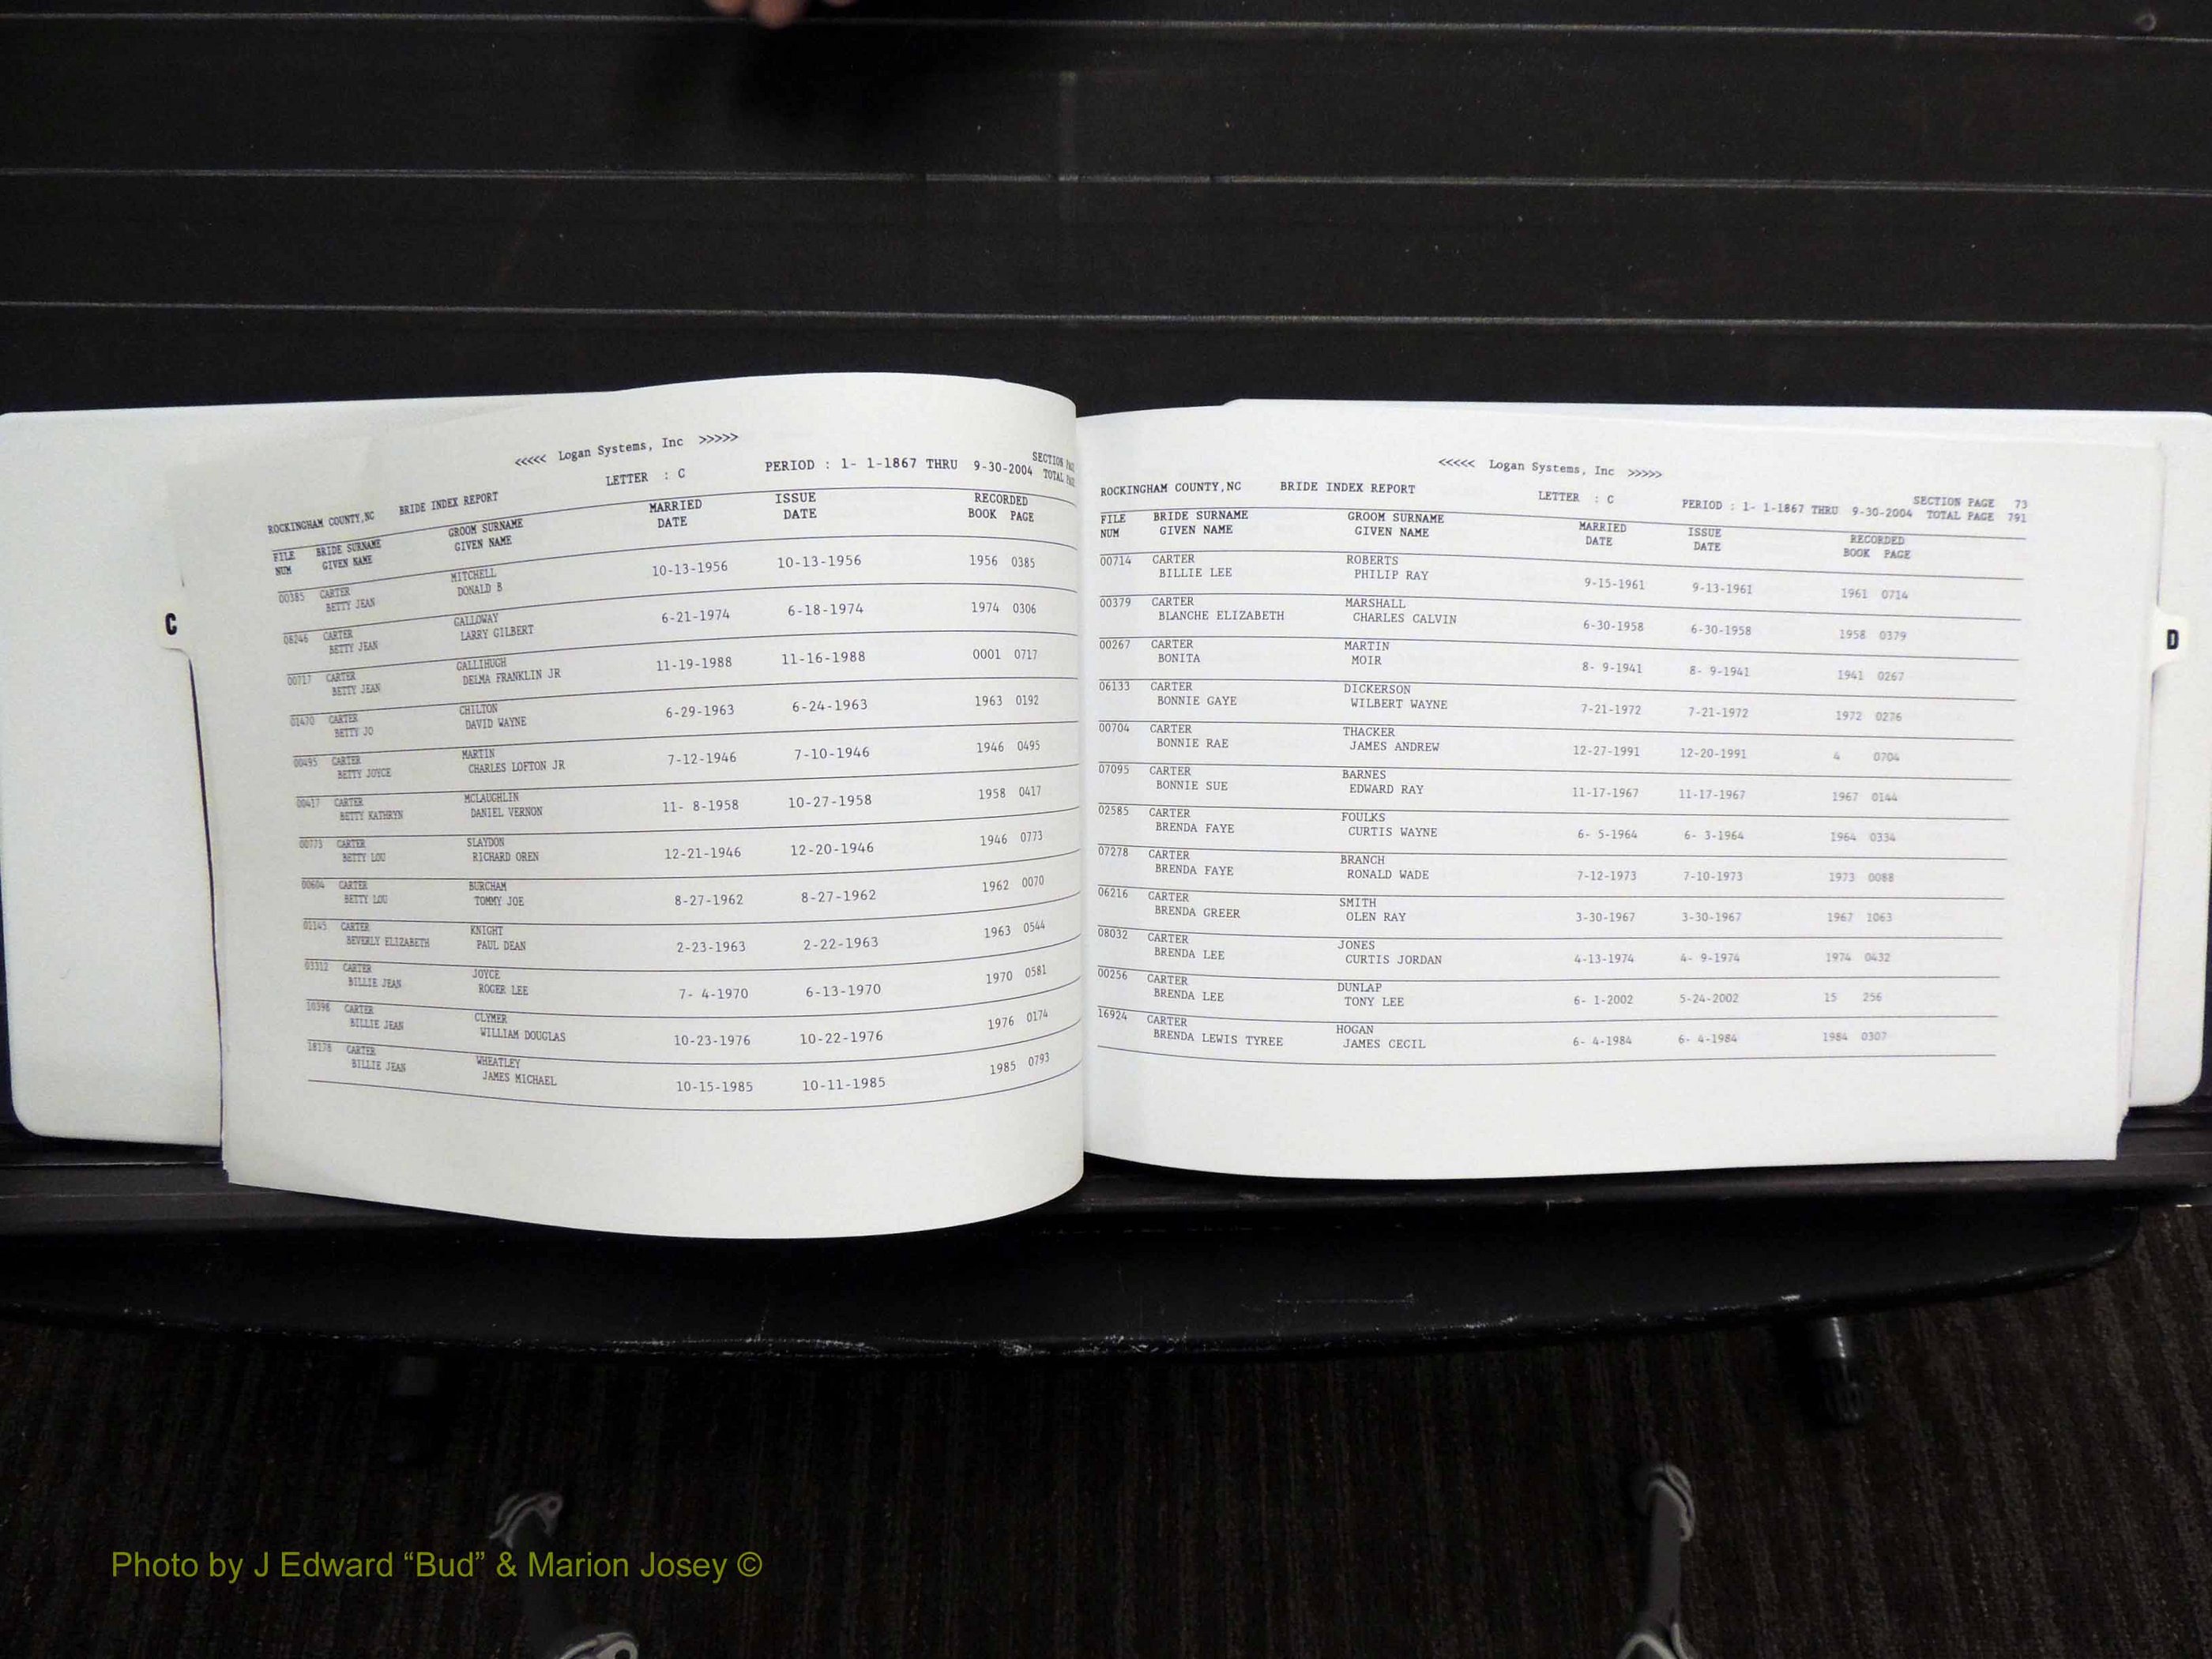 C
<<<<< Logan Systems, Inc >>>>>
ROCKINGHAM COUNTY,NC BRIDE INDEX REPORT LETTER : C PERIOD : 1- 1-1867 THRU 9-30-2004 SECTION
TOTAL
FILE BRIDE SURNAME GROOM SURNAME MARRIED ISSUE RECORDED
NUM GIVEN NAME GIVEN NAME DATE DATE BOOK PAGE
00385 CARTER MITCHELL 10-13-1956 10-13-1956 1956 0385
BETTY JEAN DONALD B
08246 CARTER GALLOWAY 6-21-1974 6-18-1974 1974 0306
BETTY JEAN LARRY GILBERT
00717 CARTER GALLIHUGH 11-19-1988 11-16-1988 0001 0717
BETTY JEAN DELMA FRANKLIN JR
01470 CARTER CHILTON 6-29-1963 6-24-1963 1963 0192
BETTY JO DAVID WAYNE
00495 CARTER MARTIN 7-12-1946 7-10-1946 1946 0495
BETTY JOYCE CHARLES LOFTON JR
00417 CARTER MCLAUGHLIN 11- 8-1958 10-27-1958 1958 0417
BETTY KATHRYN DANIEL VERNON
00773 CARTER SLAYDON 12-21-1946 12-20-1946 1946 0773
BETTY LOU RICHARD OREN
00604 CARTER BURCHAM 8-27-1962 8-27-1962 1962 0070
BETTY LOU TOMMY JOE
01145 CARTER KNIGHT 2-23-1963 2-22-1963 1963 0544
BEVERLY ELIZABETH PAUL DEAN
03312 CARTER JOYCE 7- 4-1970 6-13-1970 1970 0581
BILLIE JEAN ROGER LEE
10398 CARTER CLYMER 10-23-1976 10-22-1976 1976 0174
BILLIE JEAN WILLIAM DOUGLAS
18178 CARTER WHEATLEY 10-15-1985 10-11-1985 1985 0793
BILLIE JEAN JAMES MICHAEL
<<<<< Logan Systems, Inc >>>>>
ROCKINGHAM COUNTY,NC BRIDE INDEX REPORT LETTER : C PERIOD : 1- 1-1867 THRU 9-30-2004 SECTION PAGE 73
TOTAL PAGE 791
FILE BRIDE SURNAME GROOM SURNAME MARRIED ISSUE RECORDED
NUM GIVEN NAME GIVEN NAME DATE DATE BOOK PAGE
00714 CARTER ROBERTS 9-15-1961 9-13-1961 1961 0714
BILLIE LEE PHILIP RAY
00379 CARTER MARSHALL 6-30-1958 6-30-1958 1958 0379
BLANCHE ELIZABETH CHARLES CALVIN
00267 CARTER MARTIN 8- 9-1941 8- 9-1941 1941 0267
BONITA MOIR
06133 CARTER DICKERSON 7-21-1972 7-21-1972 1972 0276
BONNIE GAYE WILBERT WAYNE
00704 CARTER THACKER 12-27-1991 12-20-1991 4 0704
BONNIE RAE JAMES ANDREW
07095 CARTER BARNES 11-17-1967 11-17-1967 1967 0144
BONNIE SUE EDWARD RAY
02585 CARTER FOULKS 6- 5-1964 6- 3-1964 1964 0334
BRENDA FAYE CURTIS WAYNE
07278 CARTER BRANCH 7-12-1973 7-10-1973 1973 0088
BRENDA FAYE RONALD WADE
06216 CARTER SMITH 3-30-1967 3-30-1967 1967 1063
BRENDA GREER OLEN RAY
08032 CARTER JONES 4-13-1974 4- 9-1974 1974 0432
BRENDA LEE CURTIS JORDAN
00256 CARTER DUNLAP 6- 1-2002 5-24-2002 15 256
BRENDA LEE TONY LEE
16924 CARTER HOGAN 6- 4-1984 6- 4-1984 1984 0307
BRENDA LEWIS TYREE JAMES CECIL
D
Photo by J Edward “Bud” & Marion Josey ©